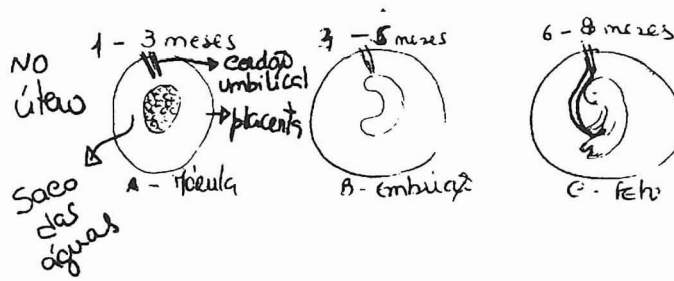 1 - 3 meses
No
útero
cordão
umbilical
placenta
Saco
das
águas
A - Mórula
4 - 5 meses
B - Embrião
6 - 8 meses
C - Feto